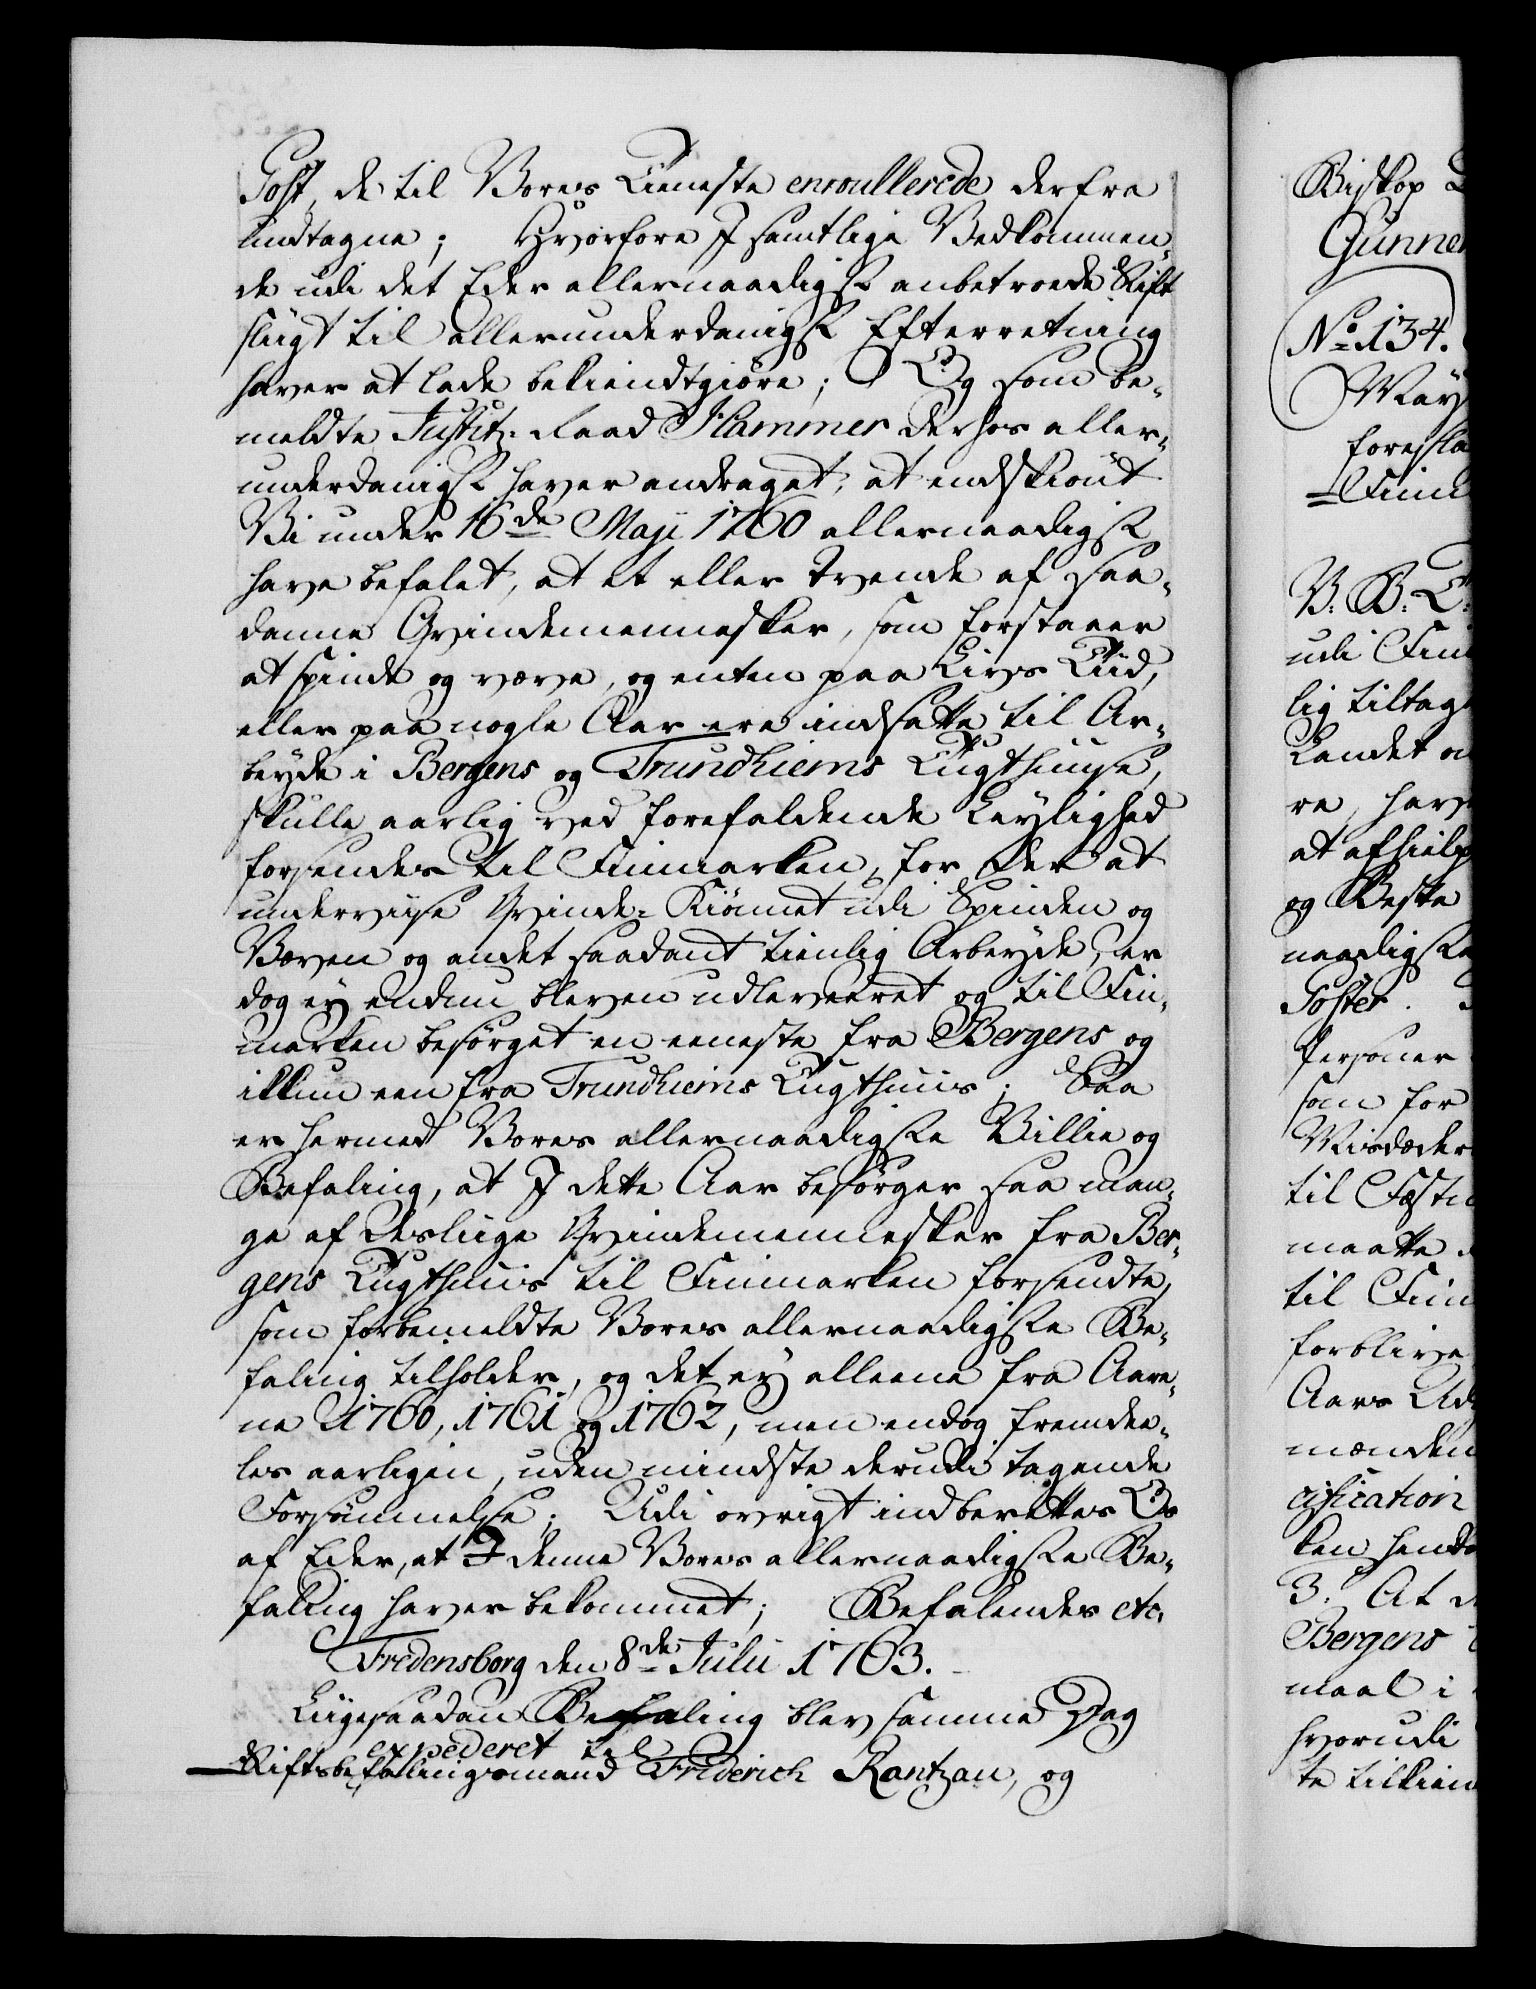 Post, de til Vores Tieneste enroullerede derfra
undtagne; Hvorfore I samtlige Vedkommen-
de udi det Eder allernaadigst anbetroede Stift
sligt til allerunderdanigst Efterretning
haver at lade bekiendtgiøre; Og som be-
meldte Justitz-Raad Hammer derhos aller-
underdanigst haver andraget, at endskiønt
Vi under 16de Maji 1760 allernaadigst
have befalet, at et eller tvende af saa-
danne Qvindemennesker, som forstaaer
at spinde og væve, og enten paa Livs Tiid,
eller paa nogle Aar ere indsatte til Ar-
beyde i Bergens og Trundhiems Tugthuuse,
skulle aarlig ved forefaldende Leylighed
forsendes til Finmarken, for der at
underviise Qvinde-Kiönnet udi Spinden og
Væven og andet saadant tienlig Arbeyde, er
dog ey endnu bleven udleveeret og til Fin-
marken besørget en eeneste fra Bergens og
ikkun een fra Trundhiems Tugthuus; Saa
er hermed Vores allernaadigste Villie og
Befaling, at I dette Aar besørger saa man-
ge af desliige Qvindemennesker fra Ber-
gens Tugthuus til Finmarken forsendte,
som forbemeldte Vores allernaadigste Be-
faling tilholder, og det ey alleene fra Aare-
ne 1760, 1761 og 1762, men endog fremdee-
les aarligen, uden mindste derudi tagende
Forsømmelse; Udi øvrigt indberettes Os
af Eder, at I denne Vores allernaadigste Be-
faling haver bekommet; Befalendes etc.
Fredensborg den 8de Julii 1763.
Liigesaadan Befaling blev samme Dag
expederet til
Stiftsbefalingsmand Friderich Rantzau, og
Biskop
Gunner
No 134.
foresla
Finm
V. B. T.
udi Fin
lig tiltag
Landet o
re, hav
at afhielp
og Beske
naadigste
Poster.
Personer
som for
Misdæder
til Festn
maatte
til Finm
forblive
Aars Ud
mænden
cification
ken hendt
3. At d
Bergens
maal i
hvorudi
te tilkien